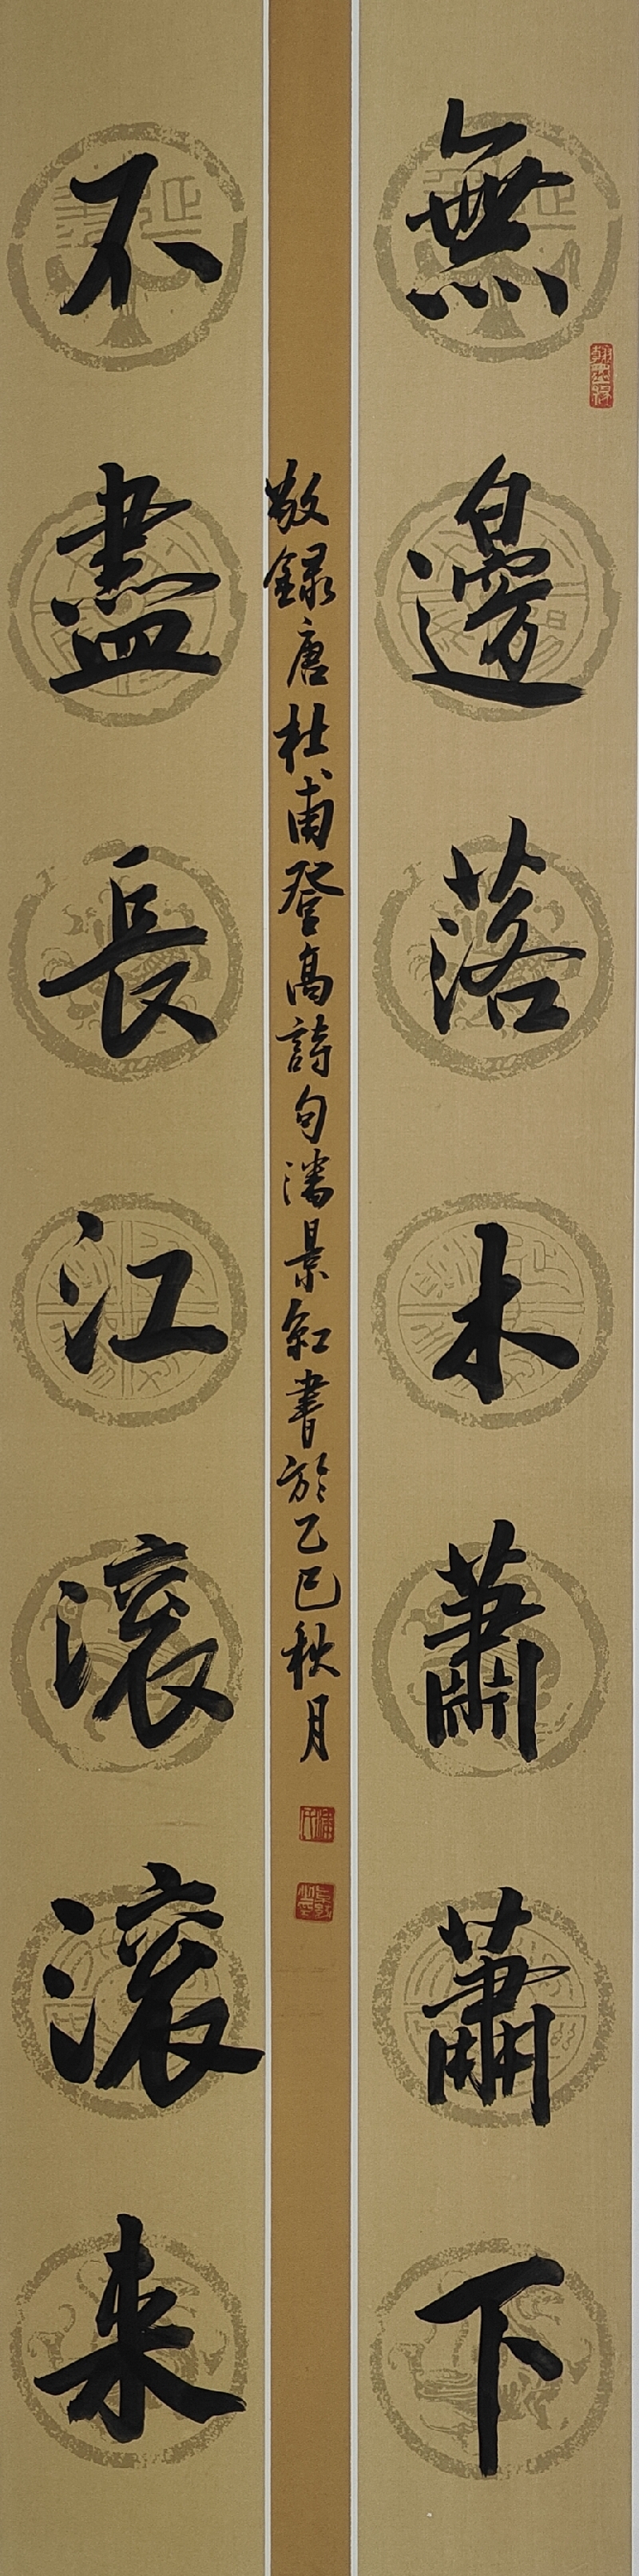 無邊落木蕭蕭下
不盡長江滾滾来
敬録唐杜甫登高詩句潘景紅書於乙巳秋月